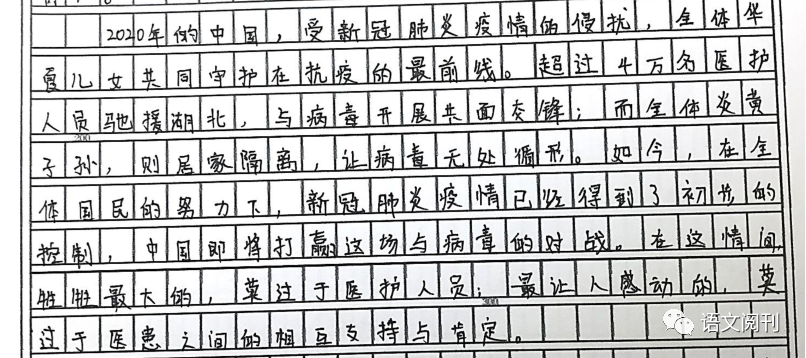 2020年的中国，受新冠肺炎疫情的侵扰，全体华
夏儿女共同守护在抗疫的最前线。超过4万名医护
人员驰援湖北，与病毒开展共面交锋；而全体炎黄
200
子孙，则居家隔离，让病毒无处循形。如今，在全
体国民的努力下，新冠肺炎疫情已经得到了初步的
控制，中国即将打赢这场与病毒的对战。在这情间，
牲牲最大的，莫过于医护人员；最让人感动的，莫
300
过于医患之间的相互支持与肯定。
语文阅刊